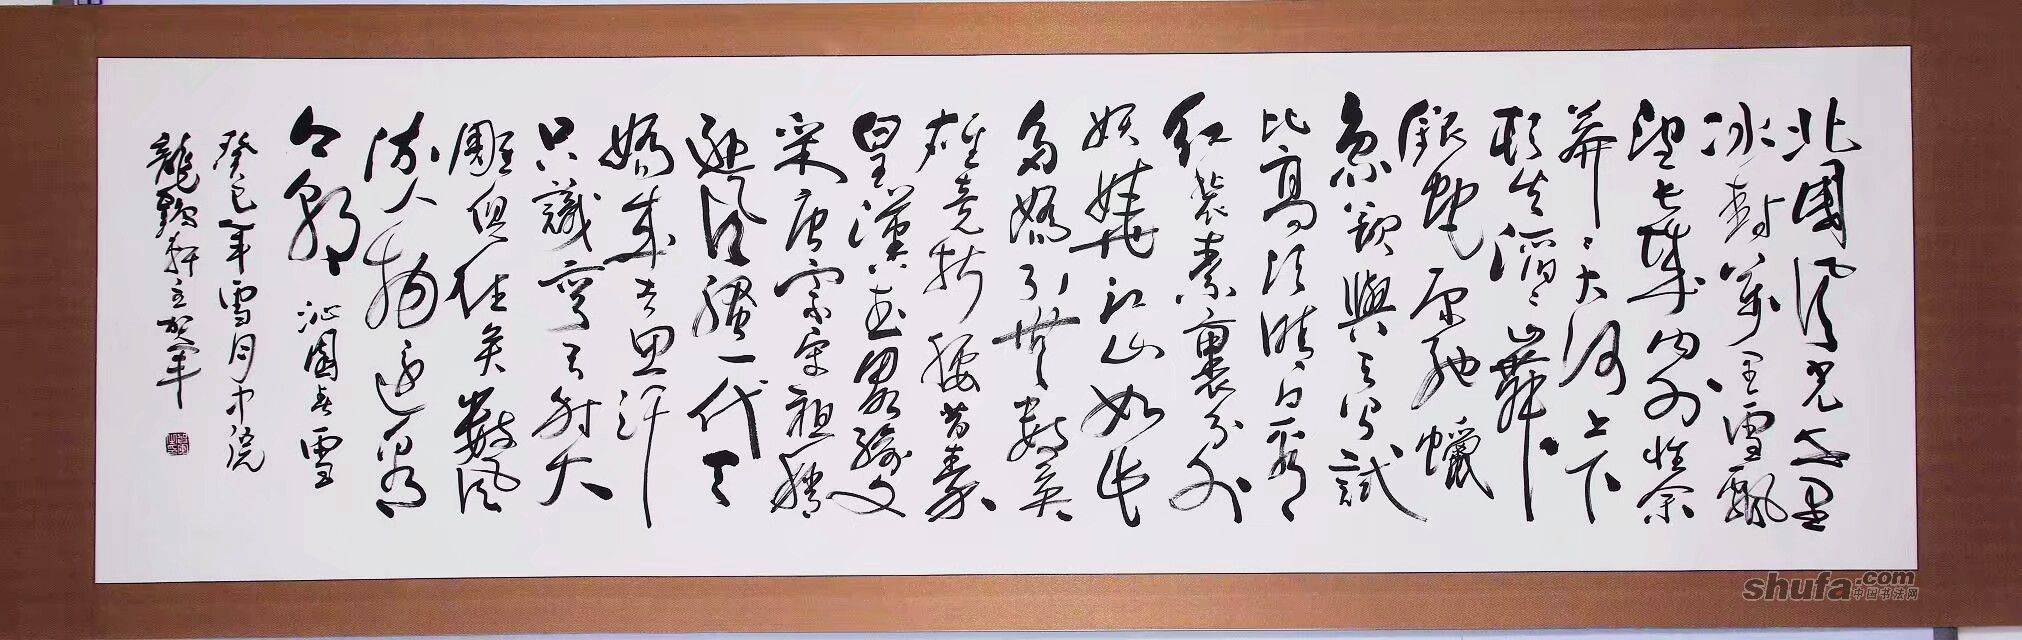 北國風光千里
冰封萬里雪飄
望長城內外惟余
莽〻大河上下
頓失滔〻山舞
銀蛇原馳蠟
象欲與天公試
比高須晴日看
紅裝素裹分外
妖嬈江山如此
多嬌引無數英
雄竞折腰昔秦
皇漢武略輸文
采唐宗宋祖稍
遜風騷一代天
嬌成吉思汗
只識彎弓射大
雕俱往矣數風
流人物還看
今朝 沁園春雪
癸巳年雪月中浣
龍軒主賀軍
shufa.com
中国书法网